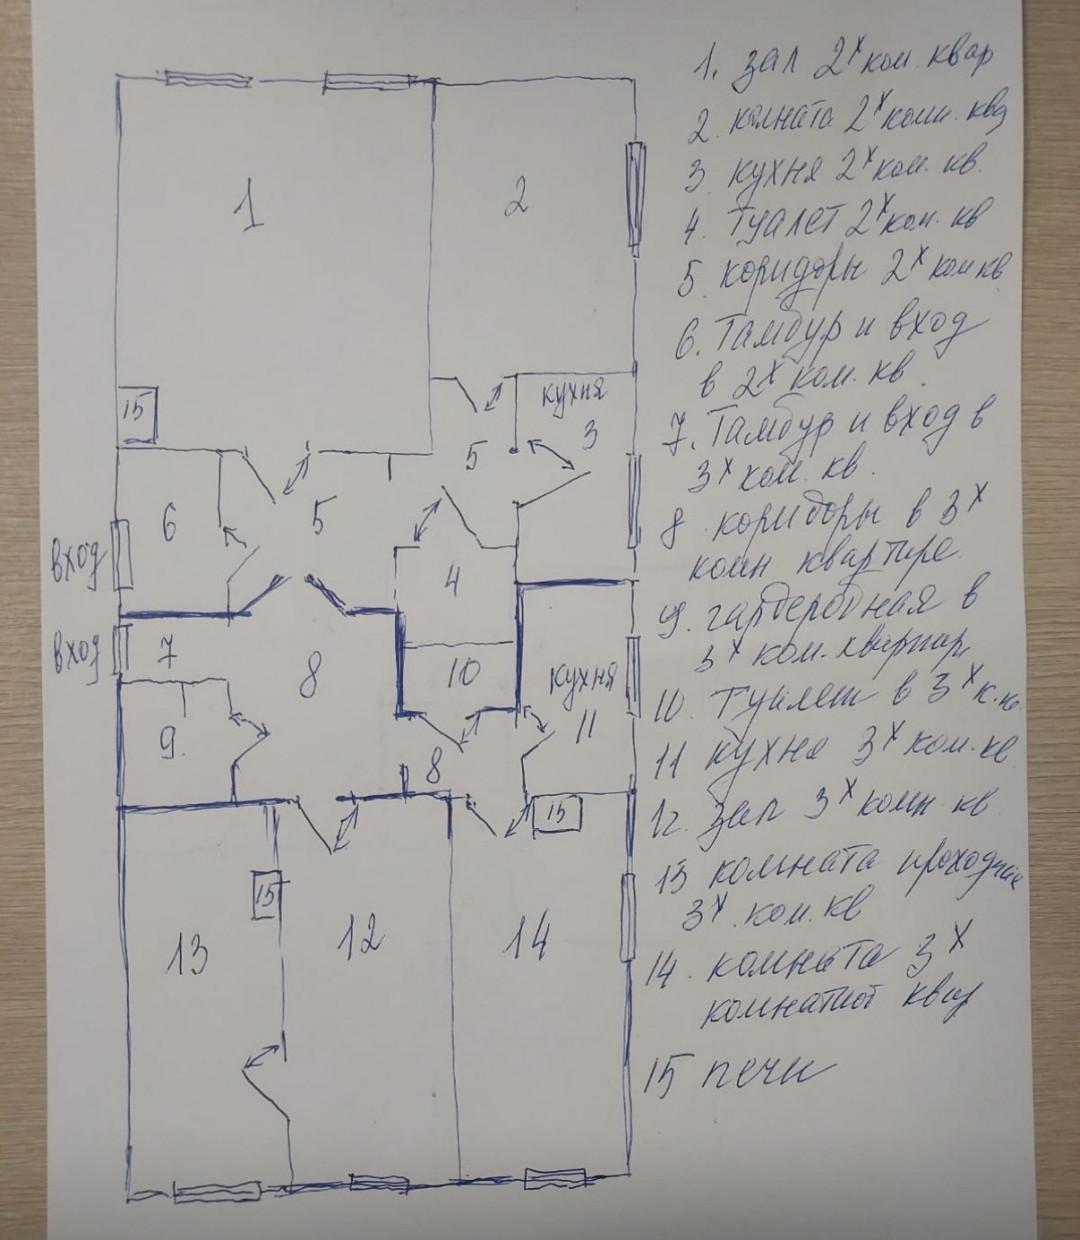 1. зал 2х ком. квар
2. комната 2х комн. ква
3. кухня 2х ком. кв.
4. туалет 2х ком. кв
5. коридоры 2х ком кв
6. Тамбур и вход
в 2х ком. кв.
7. Тамбур и вход в
3х ком. кв.
8. коридоры в 3х
комн квартире.
9. гардеробная в
3х ком. квартир
10. туалет в 3х к.кв
11 кухня 3х ком. кв
12. Зал 3х комн кв
13 комната проходная
3х. ком. кв
14. комната 3х
комнатной квар
15 печи
1
2
15
кухня
3
5
6
5
вход
4
вход
7
8
10
кухня
11
9.
8
15
15
13
12
14